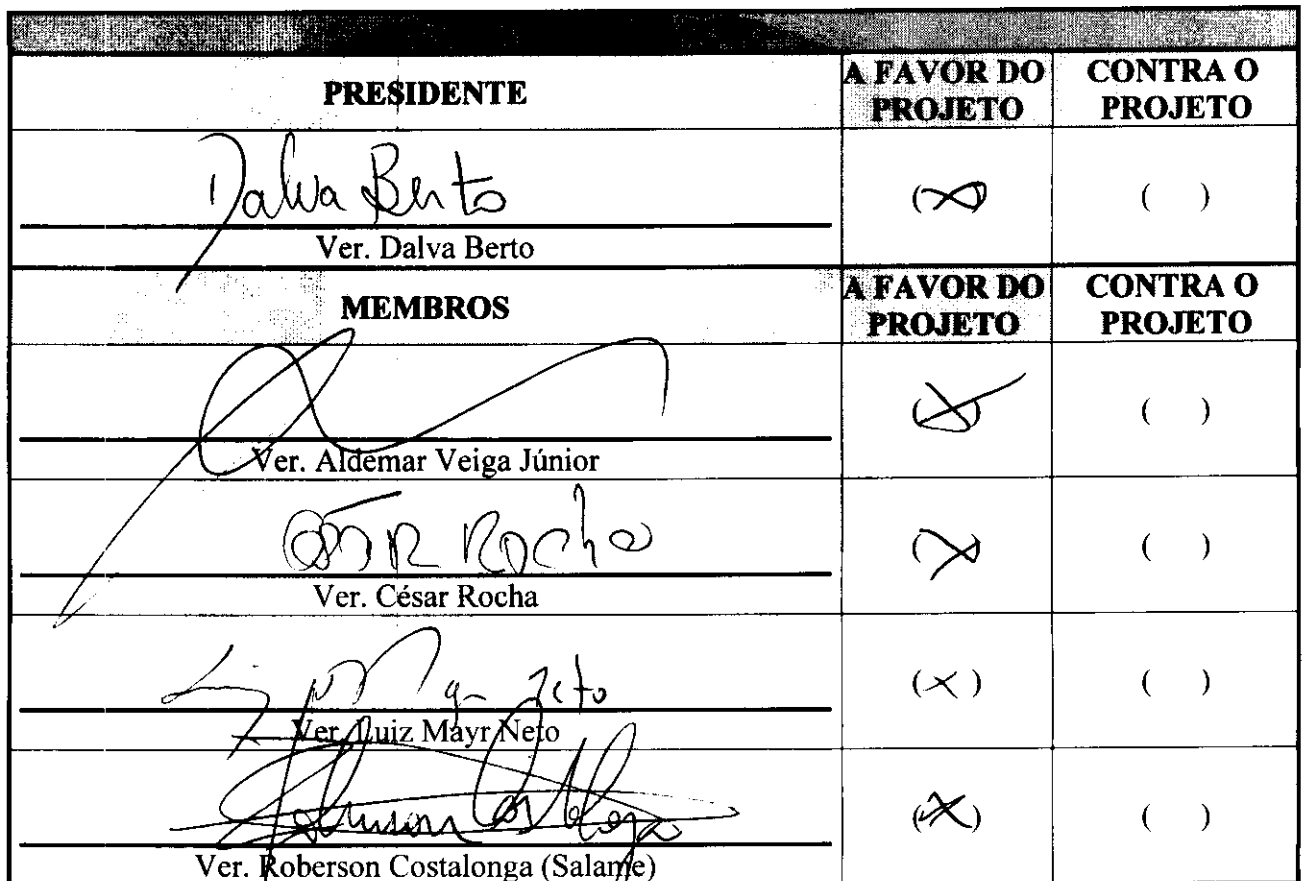 PRESIDENTE
A FAVOR DO PROJETO
CONTRA O PROJETO
Dalva Berto
(X)
( )
Ver. Dalva Berto
MEMBROS
A FAVOR DO PROJETO
CONTRA O PROJETO
(X)
( )
Ver. Aldemar Veiga Júnior
César Rocha
(X)
( )
Ver. César Rocha
Neto
(X)
( )
Ver. Luiz Mayr Neto
Roberson Costalonga
(X)
( )
Ver. Roberson Costalonga (Salame)